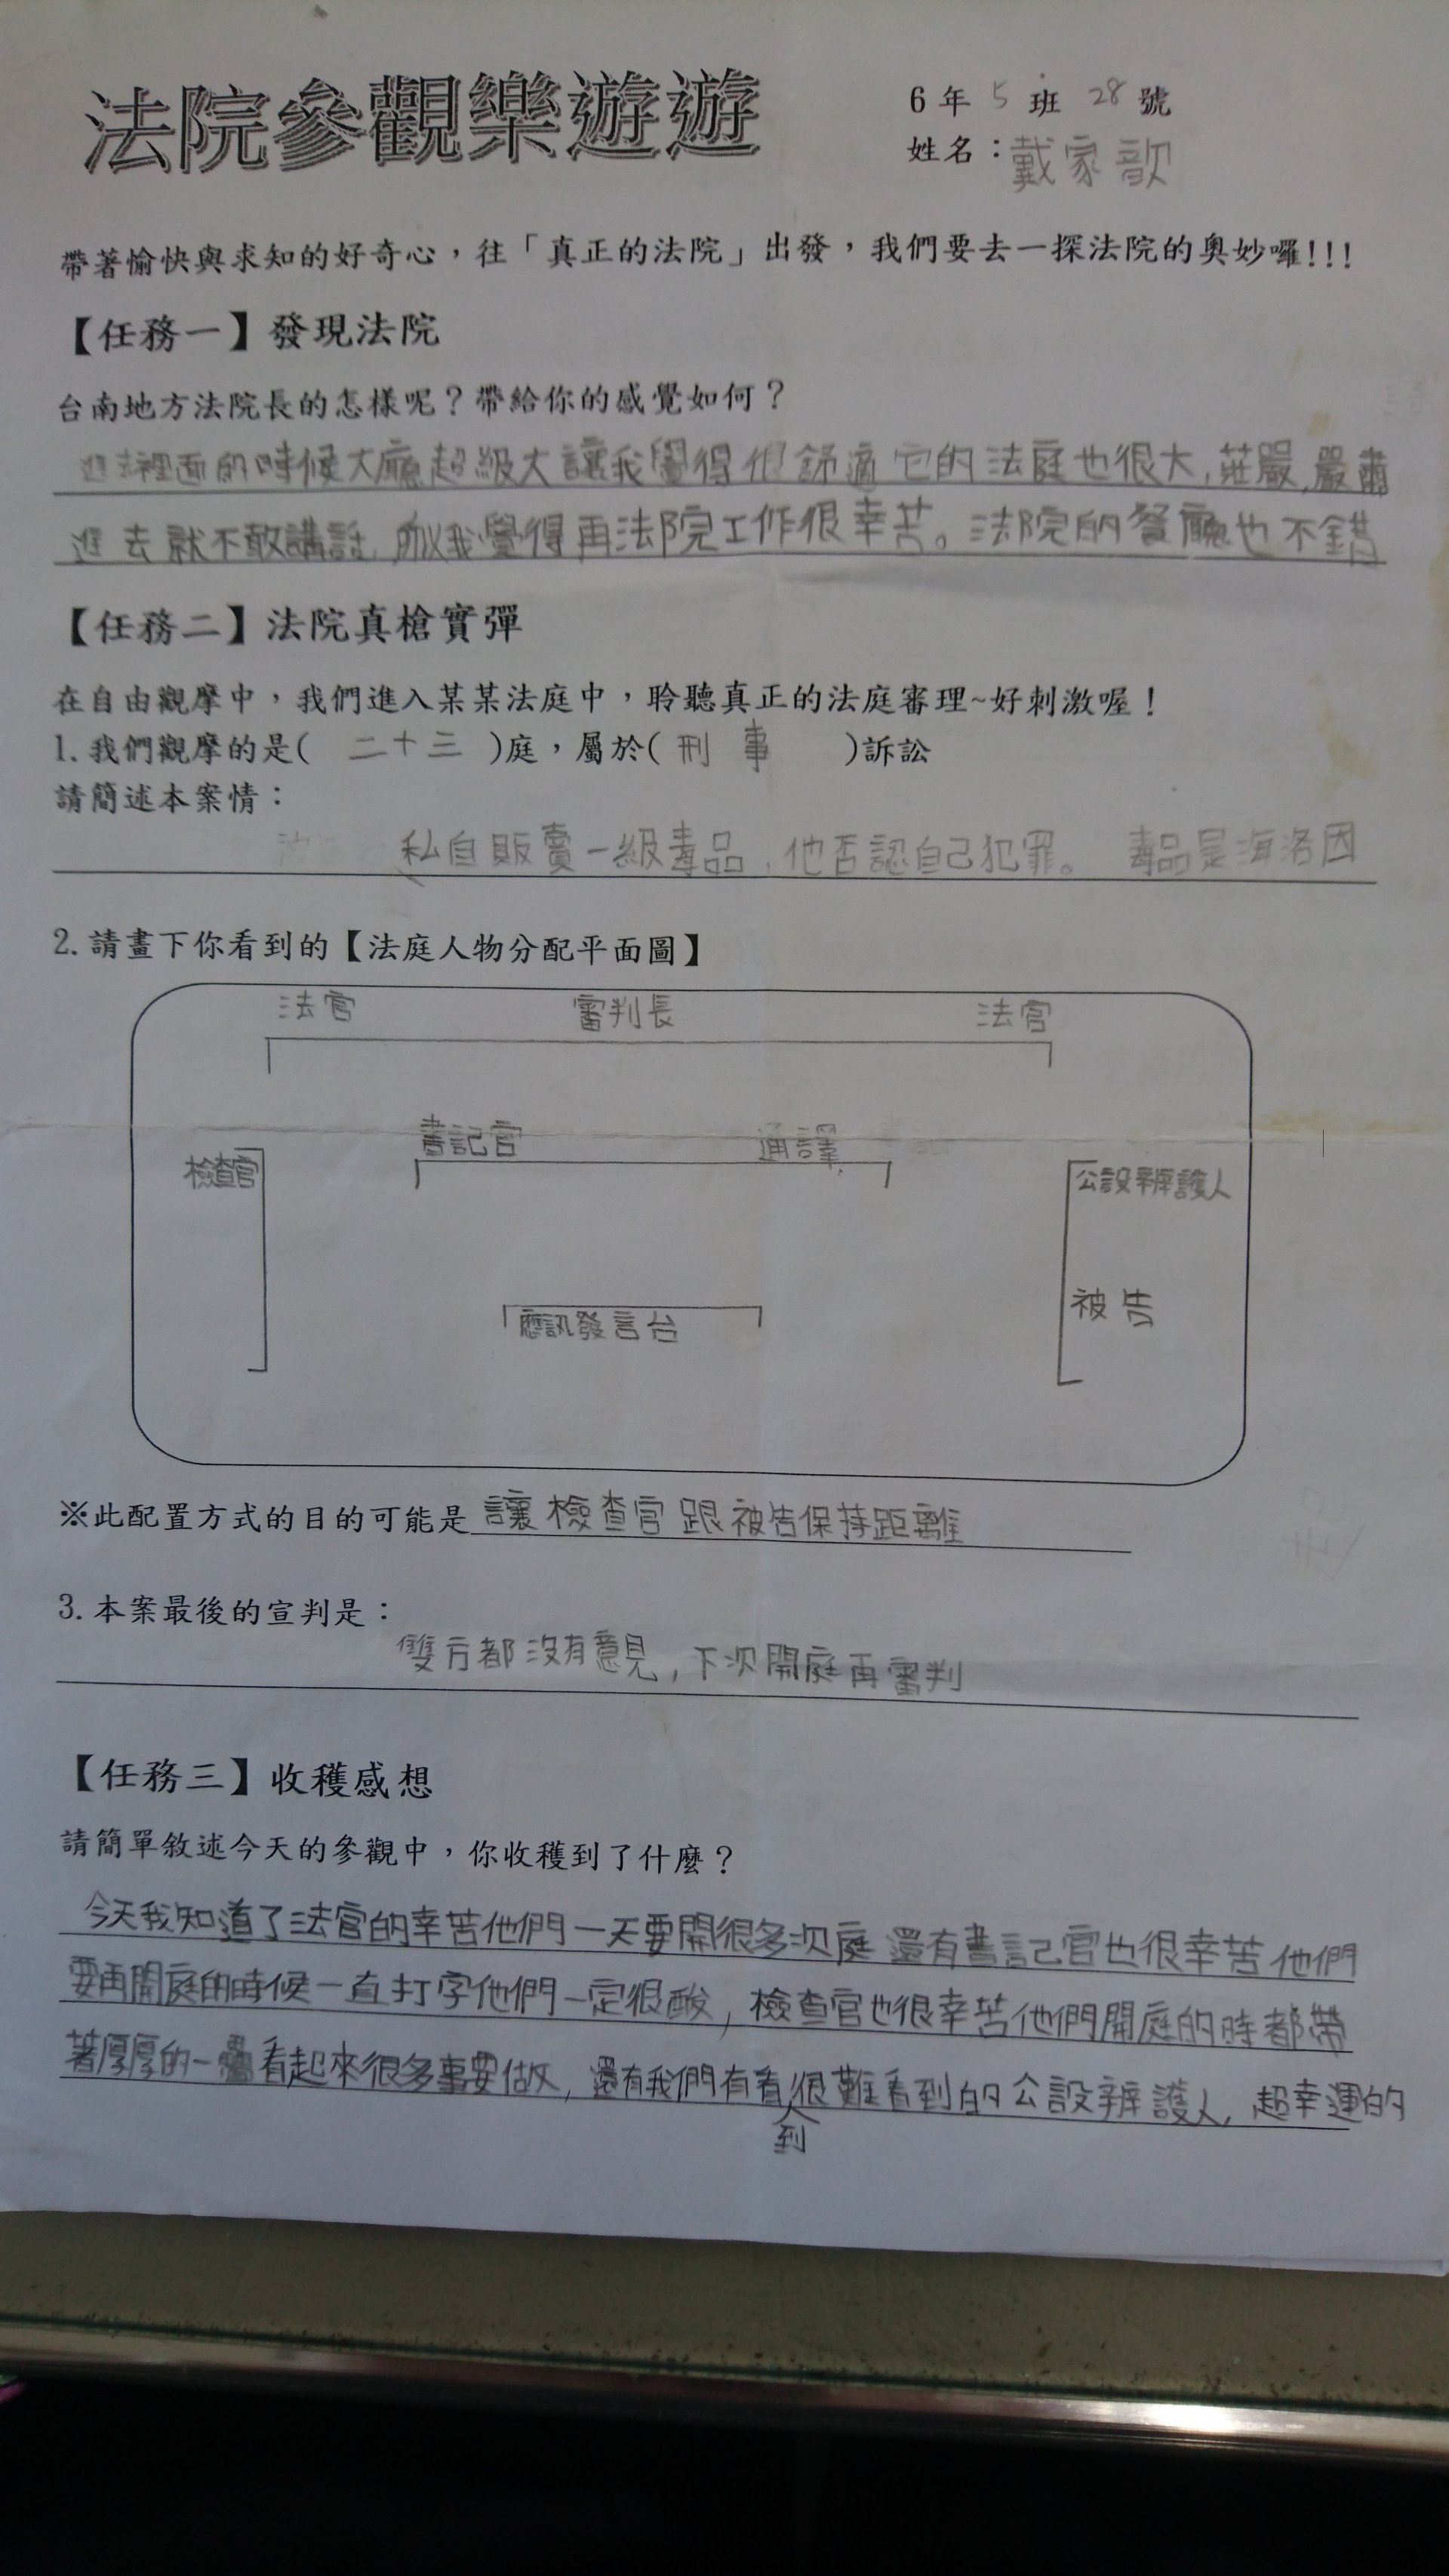 法院參觀樂遊遊
6年 5 班 28 號
姓名：戴家歆
帶著愉快與求知的好奇心，往「真正的法院」出發，我們要去一探法院的奧妙囉!!!
【任務一】發現法院
台南地方法院長的怎樣呢？帶給你的感覺如何？
進去裡面的時候大廳超級大讓我覺得很舒適它的法庭也很大,莊嚴,嚴肅
進去就不敢講話,所以我覺得再法院工作很幸苦。法院的餐廳也不錯
【任務二】法院真槍實彈
在自由觀摩中，我們進入某某法庭中，聆聽真正的法庭審理~好刺激喔！
1.我們觀摩的是( 二十三 )庭，屬於( 刑事 )訴訟
請簡述本案情：
私自販賣一級毒品,他否認自己犯罪。 毒品是海洛因
2.請畫下你看到的【法庭人物分配平面圖】
法官 審判長 法官
書記官 通譯
檢查官 公設辦護人
應訊發言台 被告
※此配置方式的目的可能是讓檢查官跟被告保持距離
3.本案最後的宣判是：
雙方都沒有意見,下次開庭再審判
【任務三】收穫感想
請簡單敘述今天的參觀中，你收穫到了什麼？
今天我知道了法官的幸苦他們一天要開很多次庭 還有書記官也很幸苦他們
要再開庭的時候一直打字他們一定很酸,檢查官也很幸苦他們開庭的時都帶
著厚厚的一疊看起來很多事要做,還有我們有看到很難看到的公設辦護人,超幸運的